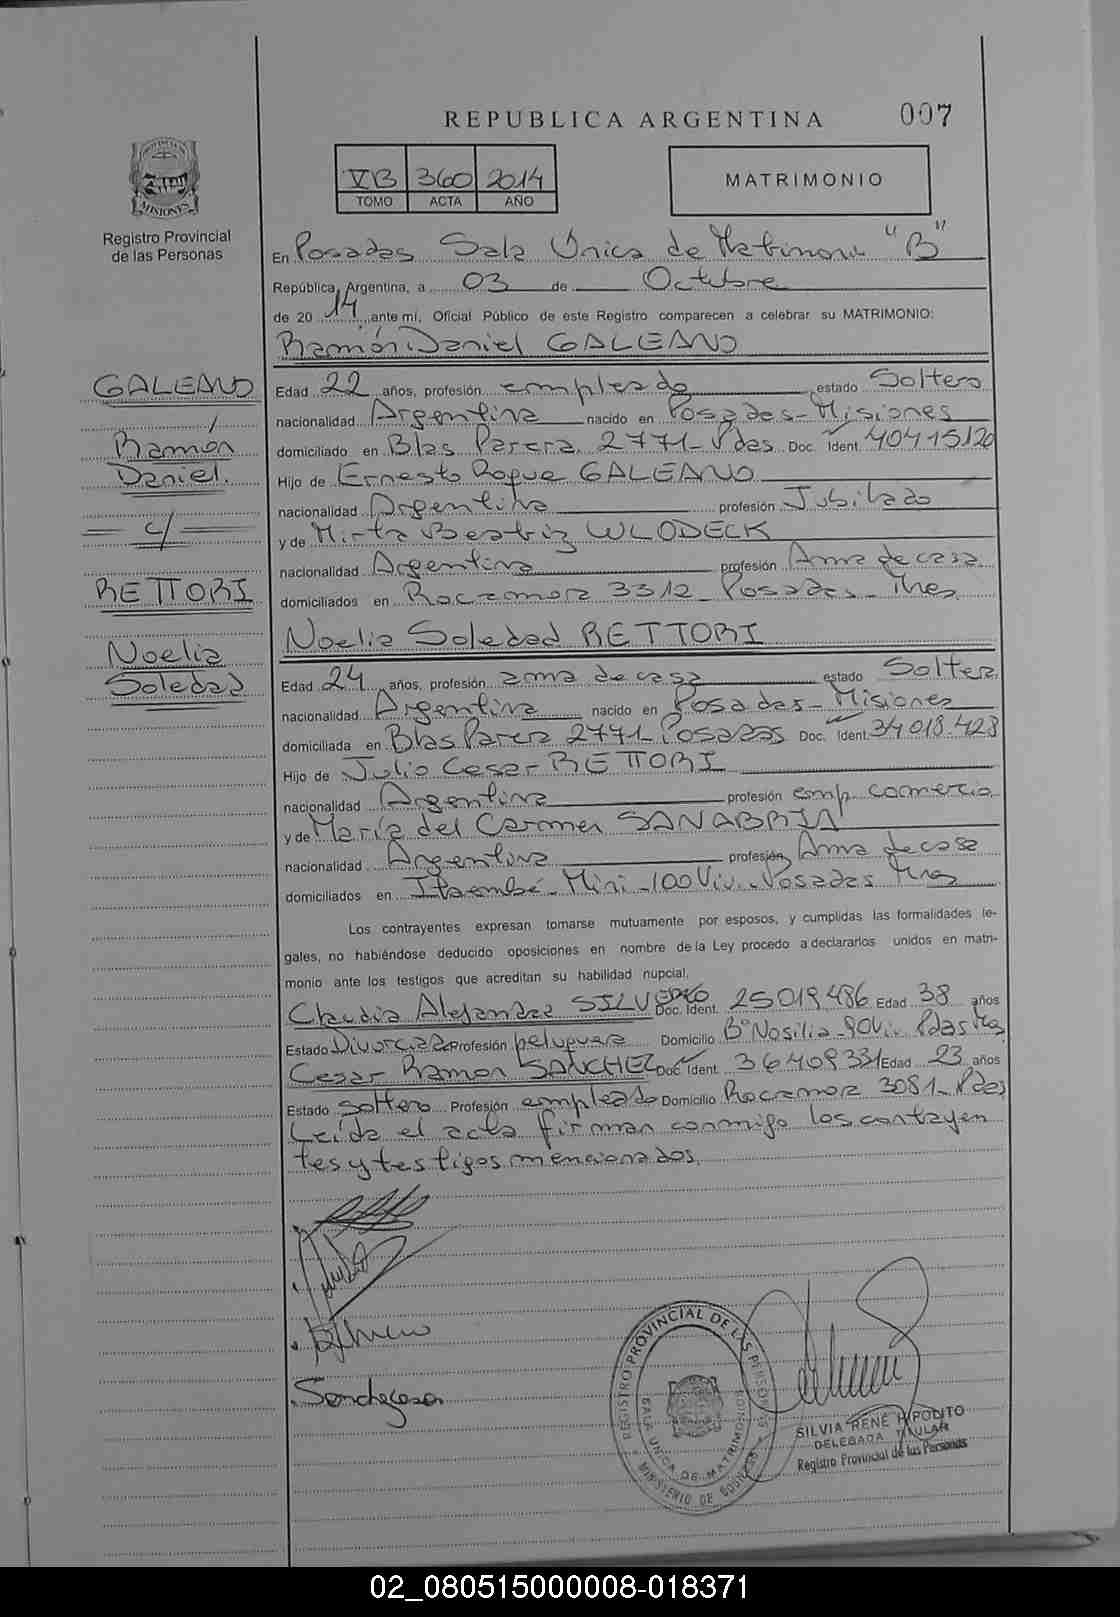 REPUBLICA ARGENTINA 007
PROVINCIA DE
MISIONES
Registro Provincial
de las Personas
VB 360 2014
TOMO ACTA AÑO
MATRIMONIO
En Posadas Sala Única de Matrimonio "B"
República Argentina, a 03 de Octubre
de 20 14 ante mí, Oficial Público de este Registro comparecen a celebrar su MATRIMONIO:
Ramón Daniel GALEANO
GALEANO
Ramón
Daniel.
c/
RETTORI
Noelia
Soledad
Edad 22 años, profesión empleado estado Soltero
nacionalidad Argentina nacido en Posadas - Misiones
domiciliado en Blas Parera 2771 - Pdas Doc. Ident. 40415120
Hijo de Ernesto Roque GALEANO
nacionalidad Argentina profesión Jubilado
y de Mirta Beatriz WLODECK
nacionalidad Argentina profesión Ama de casa
domiciliados en Rocamora 3312 - Posadas - Mnes
Noelia Soledad RETTORI
Edad 24 años, profesión ama de casa estado Soltera
nacionalidad Argentina nacido en Posadas - Misiones
domiciliada en Blas Parera 2771 Posadas Doc. Ident. 34018.428
Hijo de Julio Cesar RETTORI
nacionalidad Argentina profesión emp. comercio
y de María del Carmen SANABRIA
nacionalidad Argentina profesión Ama de casa
domiciliados en Itaembé - Mini - 100 Viv. - Posadas Mnes
Los contrayentes expresan tomarse mutuamente por esposos, y cumplidas las formalidades le-
gales, no habiéndose deducido oposiciones en nombre de la Ley procedo a declararlos unidos en matri-
monio ante los testigos que acreditan su habilidad nupcial.
Claudia Alejandra SILVERO Doc. Ident. 25019486 Edad 38 años
Estado Divorciada Profesión peluquera Domicilio B° 90 Viv. Pdas Mnes
Cesar Ramon SANCHEZ Doc Ident. 36409331 Edad 23 años
Estado soltero Profesión empleado Domicilio Rocamora 3081 - Pdas
Leída el acta firman conmigo los contrayen
tes y testigos mencionados.
REGISTRO PROVINCIAL DE LAS PERSONAS
SALA UNICA DE MATRIMONIOS
MINISTERIO DE GOBIERNO
SILVIA RENE HIPOLITO
DELEGADA TITULAR
Registro Provincial de las Personas
02_080515000008-018371